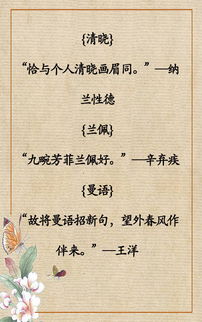 {清晓}
“恰与个人清晓画眉同。”—纳
兰性德
{兰佩}
“九畹芳菲兰佩好。”—辛弃疾
{曼语}
“故将曼语招新句，望外春风作
伴来。”—王洋